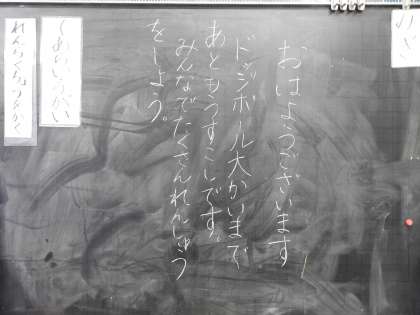 おはようございます
ドッジボール大かいまで
あともうすこしです。
みんなでたくさんれんしゅう
をしよう。
れんらくちょうをかく